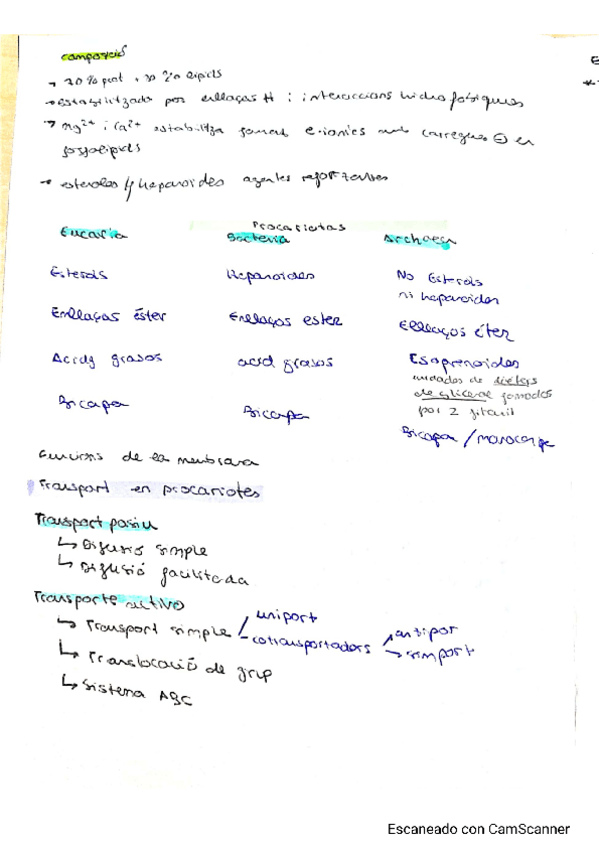 composició
→ 70% prot + 30% lípids
→ estabilitzada por enllaços H i interaccions hidrofòbiques
→ Mg2+ i Ca2+ estabilitza format e.ionics amb carregues ⊖ en
fosfolípids
→ esteroles y hopanoides agentes reforzantes
Procariotas
Eucaria Bacteria Archaea
Esterols Hopanoides No Esterols
ni hopanoides
Enllaços éster Enllaços ester Enllaços éter
Acids grasos acid grasos Isoprenoides
unidades de dieters
de glicerol formados
por 2 fitanil
Bicapa Bicapa Bicapa / monocapa
Funcions de la membrana
Transport en procariotes
Transport passiu
↳ Difusió simple
↳ Difusió facilitada
Transporte activo
↳ Transport simple uniport
cotransportadors antiport
simport
↳ Translocació de grup
↳ Sistema ABC
Escaneado con CamScanner